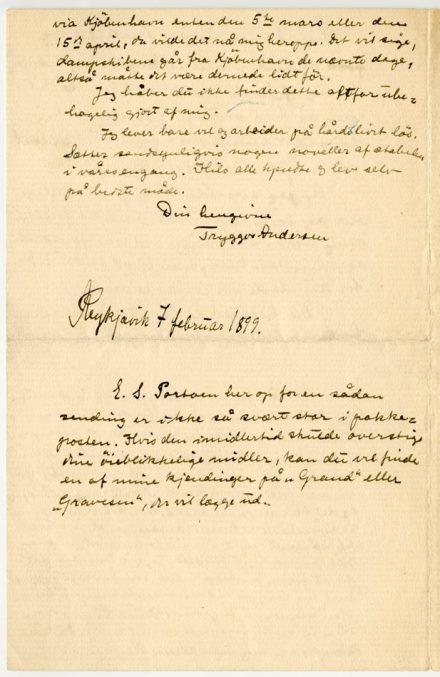 via Kjöbenhavn enten den 5te mars eller den
15de april, da vilde det nå mig heroppe. Det vil sige,
dampskibene går fra Kjöbenhavn de nævnte dage,
altså måtte det være dernede lidt för.
Jeg håber du ikke finder dette altfor ube=
hagelig gjort af mig.
Jeg lever bare vel og arbeider på hårdt livet løs.
Sætter sandsynligvis nogen noveller af stabelen
i våres engang. Hils alle kjendte og lev selv
på bedste måde.
Din hengivne
Tryggve Andersen
Reykjavik 7 februar 1899.
E. S. Portoen her op for en sådan
sending er ikke så svært stor i pakke=
posten. Hvis den imidlertid skulde overstige
dine öieblikkelige midler, kan du vel finde
en af mine kjendinger på „Grand" eller
„Gravesen", der vil lægge ud.